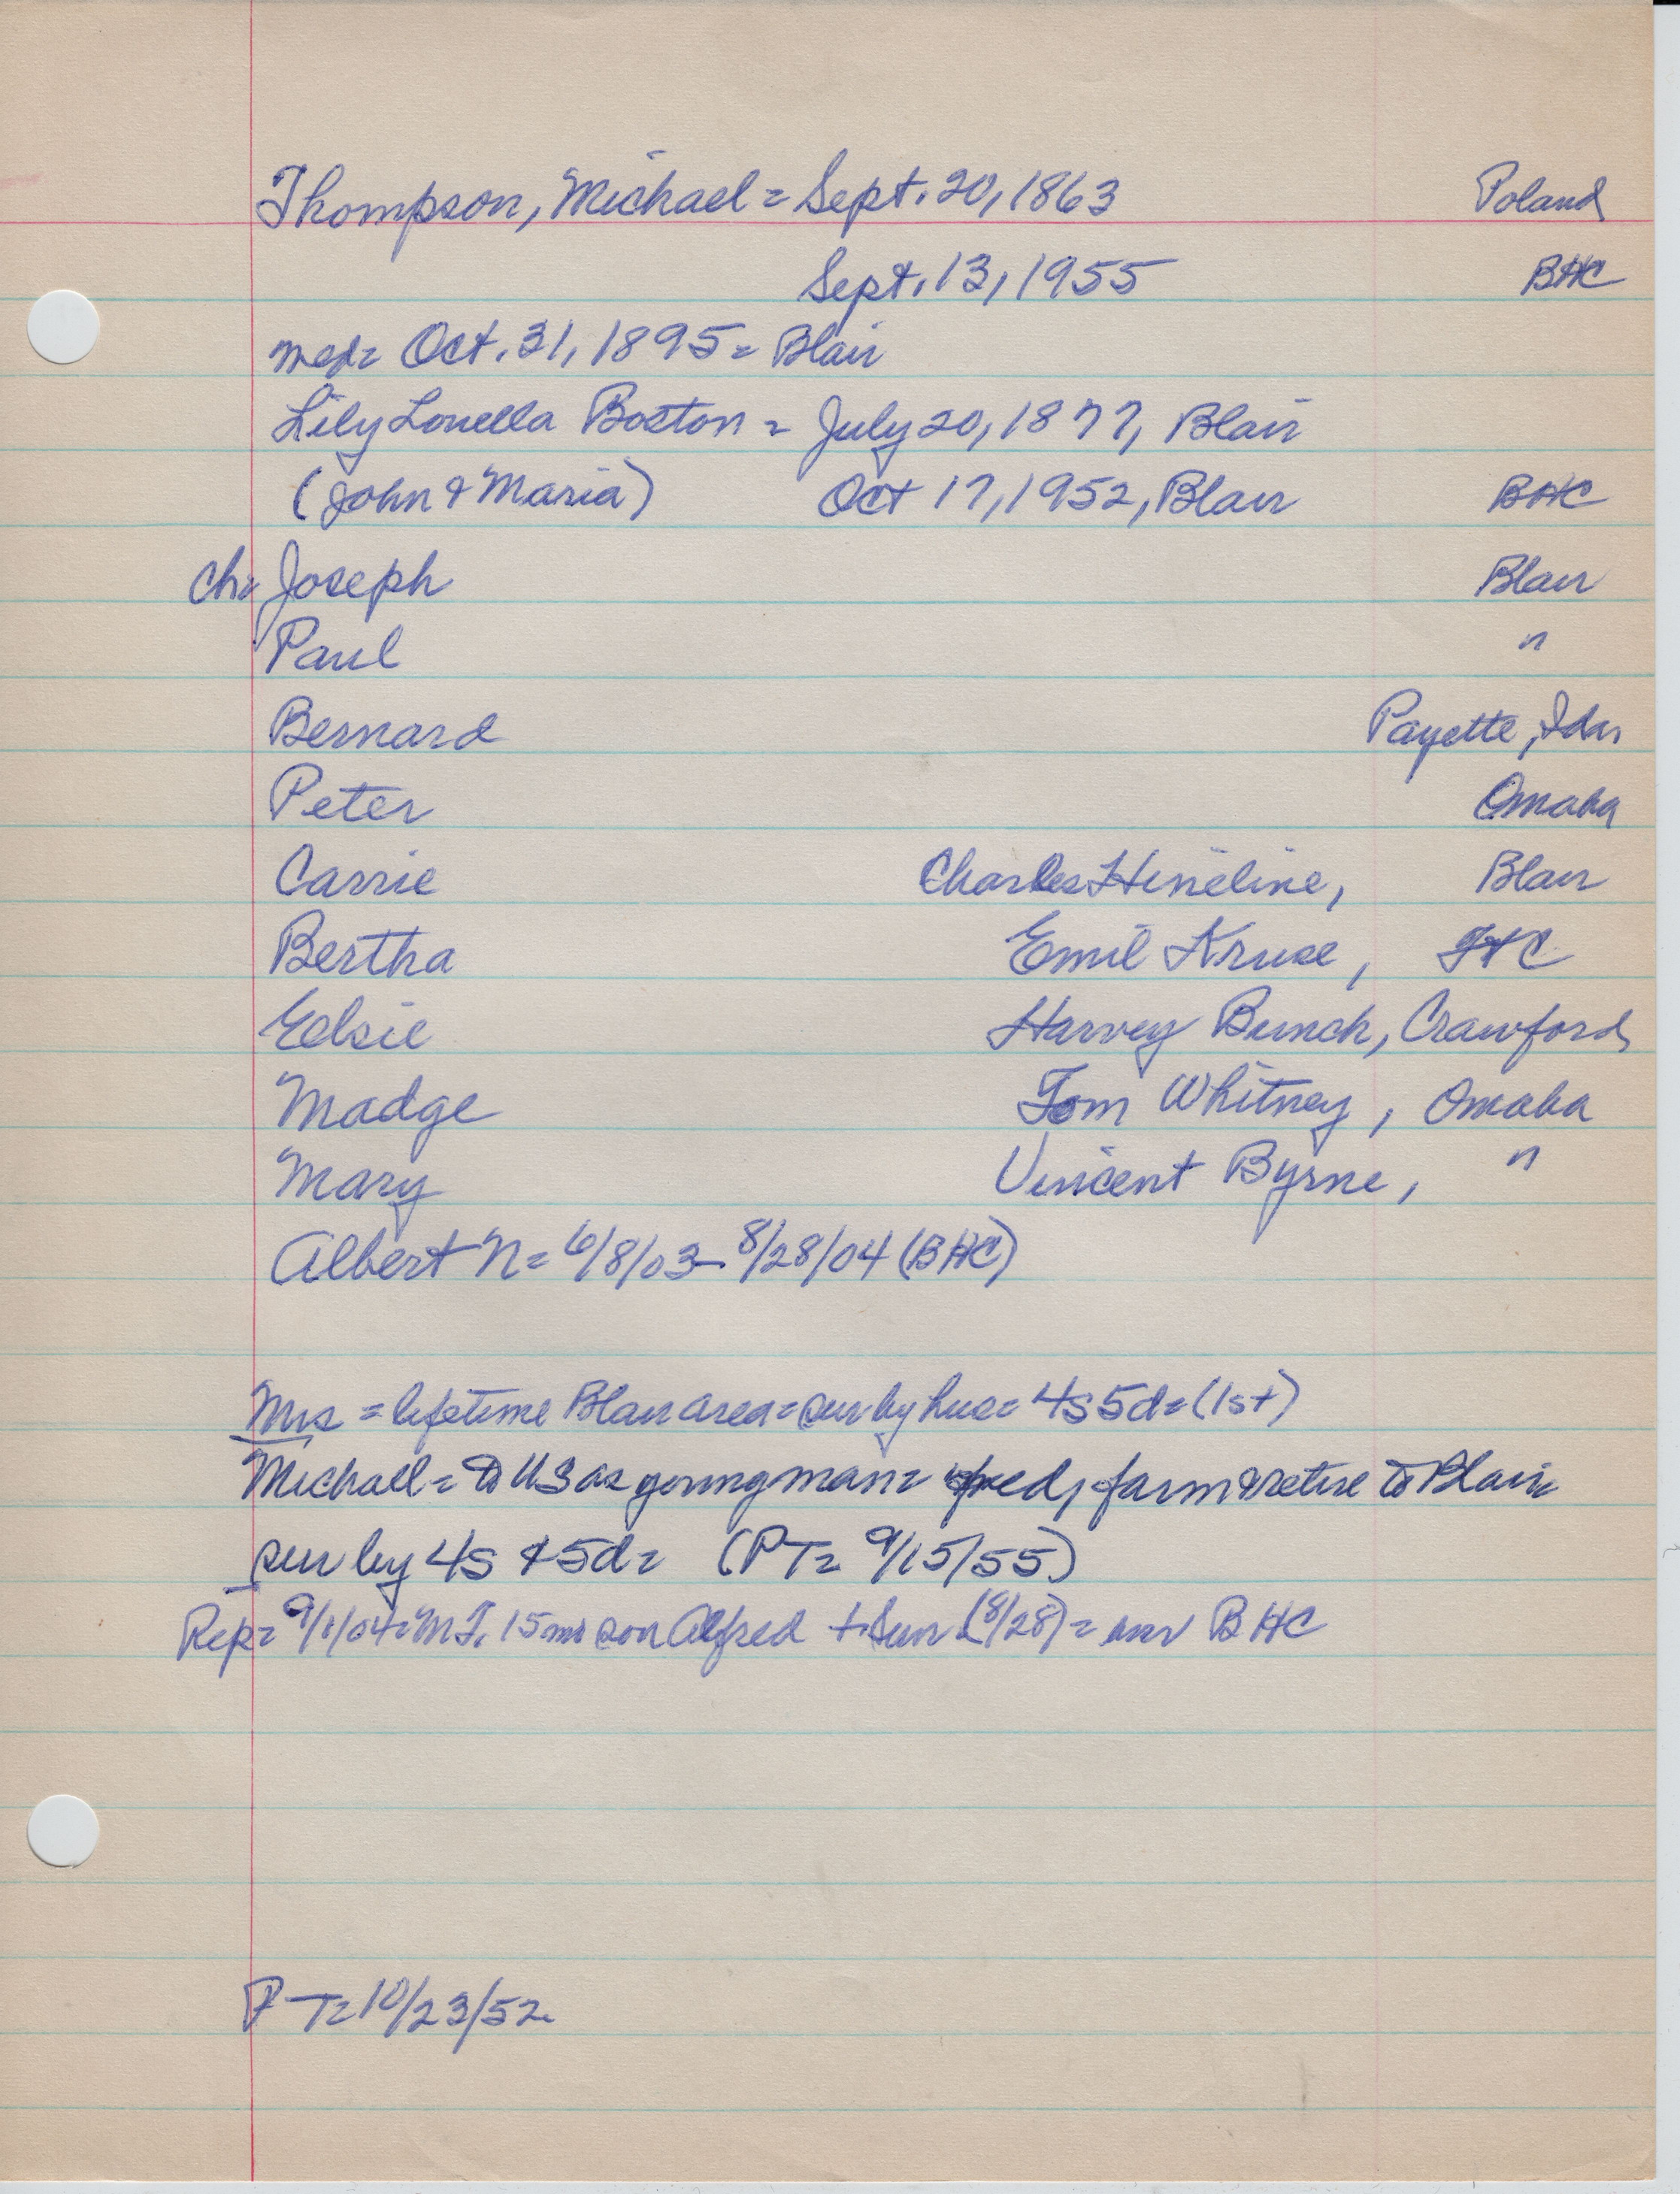 Thompson, Michael = Sept. 20, 1863 Poland
Sept. 13, 1955 BHC
med= Oct. 31, 1895 = Blair
Lily Louella Boston = July 20, 1877, Blair
(John & Maria) Oct 17, 1952, Blair BHC
Ch= Joseph Blair
Paul "
Bernard Payette, Ida
Peter Omaha
Carrie Charles Hineline, Blair
Bertha Emil Kruse, FtC
Eelsie Harvey Bunch, Crawford
Madge Tom Whitney, Omaha
Mary Vincent Byrne, "
Albert N= 6/8/03 - 8/28/04 (BHC)
Mrs = lifetime Blair area = sur by hus = 4s 5d = (1st)
Michael = to US as young man = farm & retire to Blair
sur by 4s & 5d = (PT= 9/15/55)
Rep= 9/1/04= M.T. 15 mo son Alfred + Sun (8/28) = BHC
PT= 10/23/52